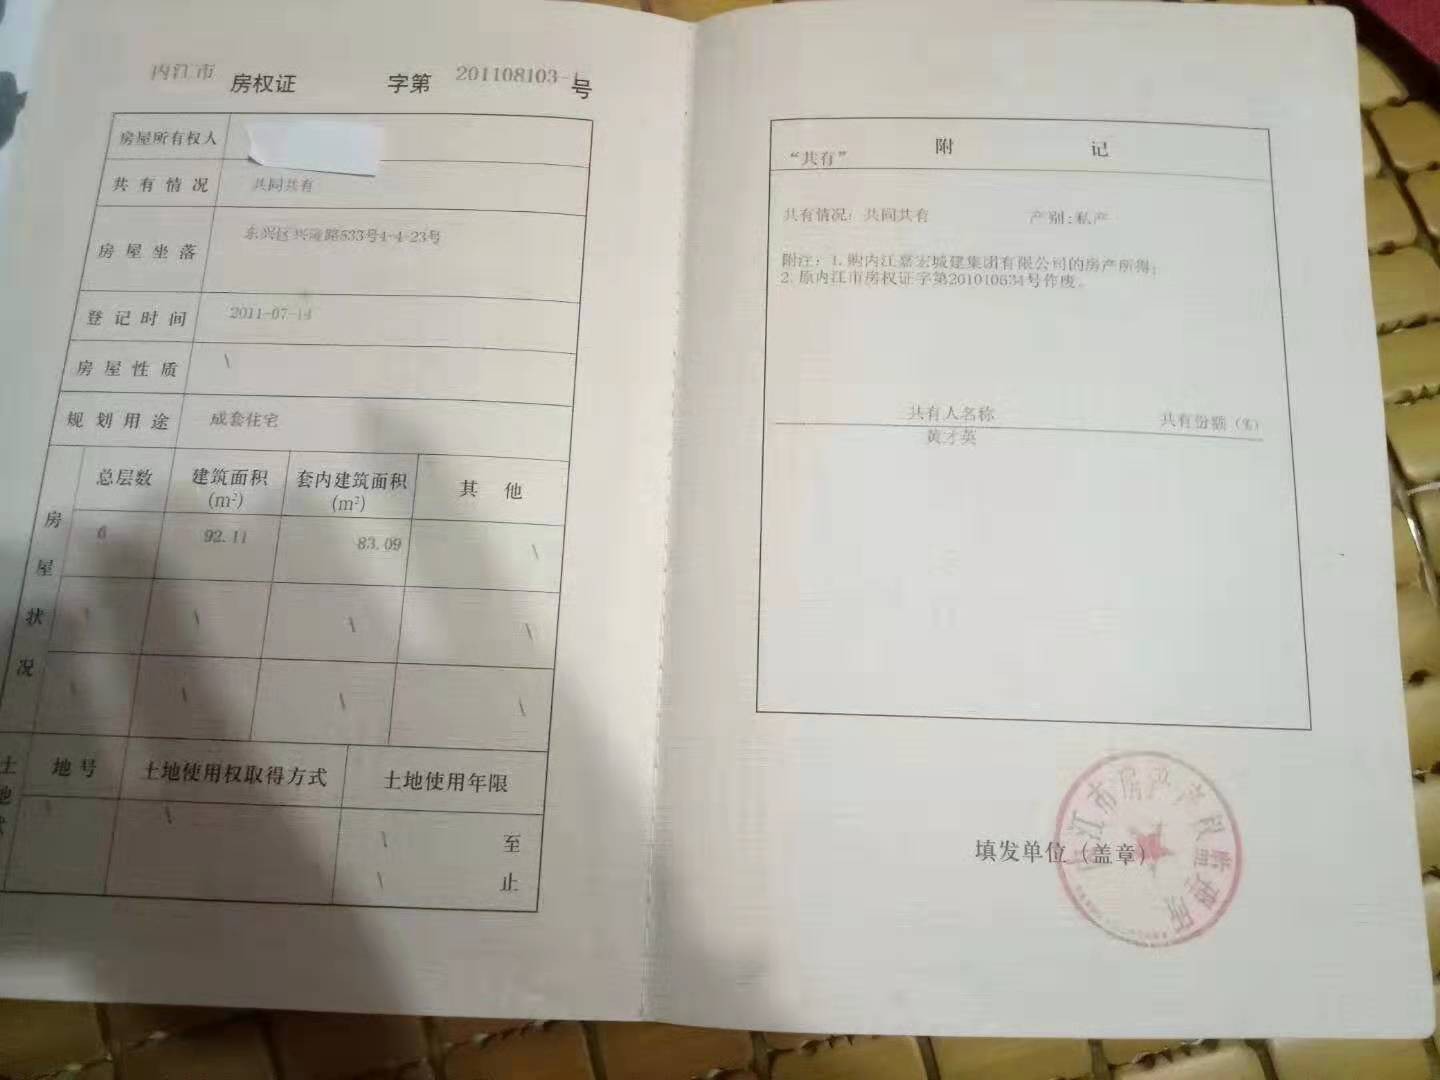 内江市 房权证 字第 201108103-1 号
房屋所有权人
共有情况 共同共有
房屋坐落 东兴区兴隆路533号4-4-23号
登记时间 2011-07-14
房屋性质 \
规划用途 成套住宅
房屋状况
总层数 建筑面积(m²) 套内建筑面积(m²) 其他
6 92.11 83.09 \
\ \ \ \
\ \ \ \
土地状
地号 土地使用权取得方式 土地使用年限
\ \ \ 至
\ 止
附 记
“共有”
共有情况：共同共有 产别：私产
附注：1.购内江嘉宏城建集团有限公司的房产所得；
2.原内江市房权证字第201010634号作废。
共有人名称 共有份额（%）
黄才英
填发单位（盖章）
江市房产产权监理所